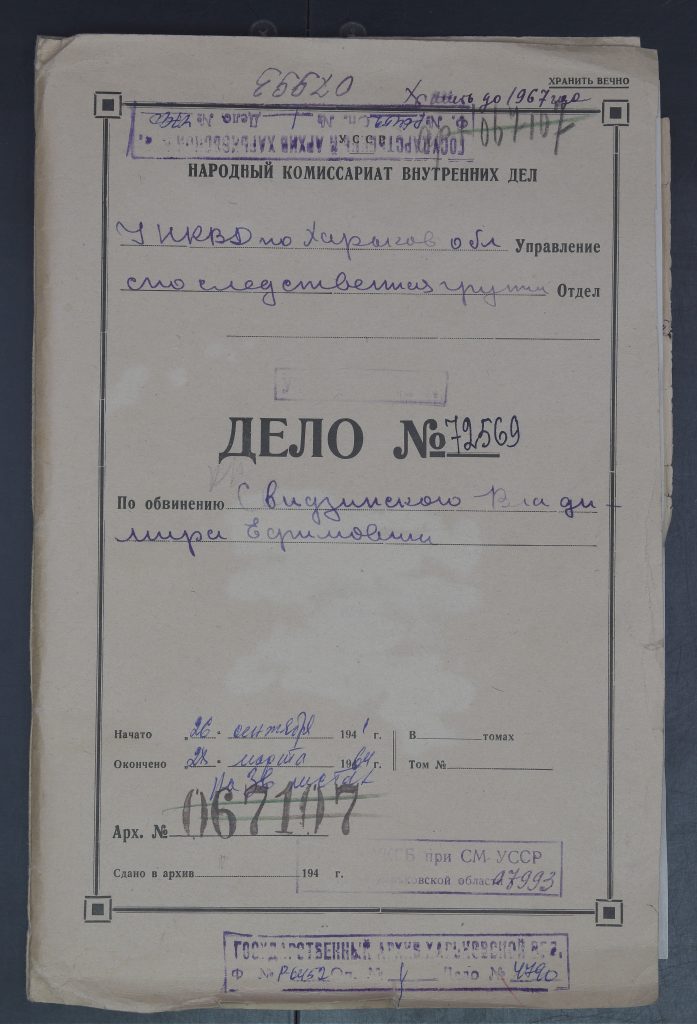 07993
ХРАНИТЬ ВЕЧНО
Хранить до 1967 года
ГОСУДАРСТВЕННЫЙ АРХИВ ХАРЬКОВСКОЙ
Ф. № Р6452 Оп. № 1 Дело № 4790
067107
СССР
НАРОДНЫЙ КОМИССАРИАТ ВНУТРЕННИХ ДЕЛ
УНКВД по Харьков обл Управление
следственная группа Отдел
ДЕЛО № 72569
По обвинению Свидзинского Влади-
мира Ефимовича
Начато „26“ сентября 1941 г.
В томах
Окончено „28“ марта 1964 г.
Том №
на 38 листах
Арх. № 067107
Сдано в архив 194 г.
УКГБ при СМ УССР
Харьковской области
07993
ГОСУДАРСТВЕННЫЙ АРХИВ ХАРЬКОВСКОЙ ОБЛ.
Ф. № Р6452 Оп. № 1 Дело № 4790